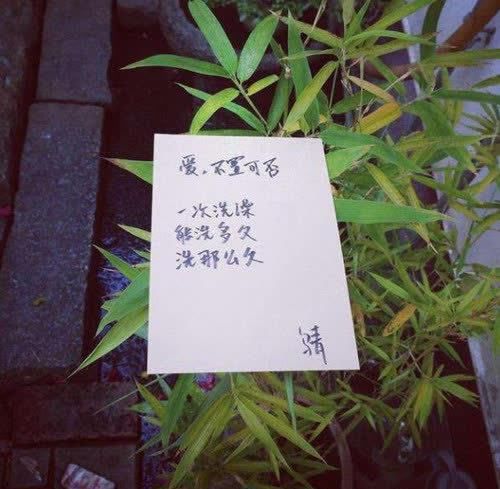 爱,不置可否
一次洗澡
能洗多久
洗那么久